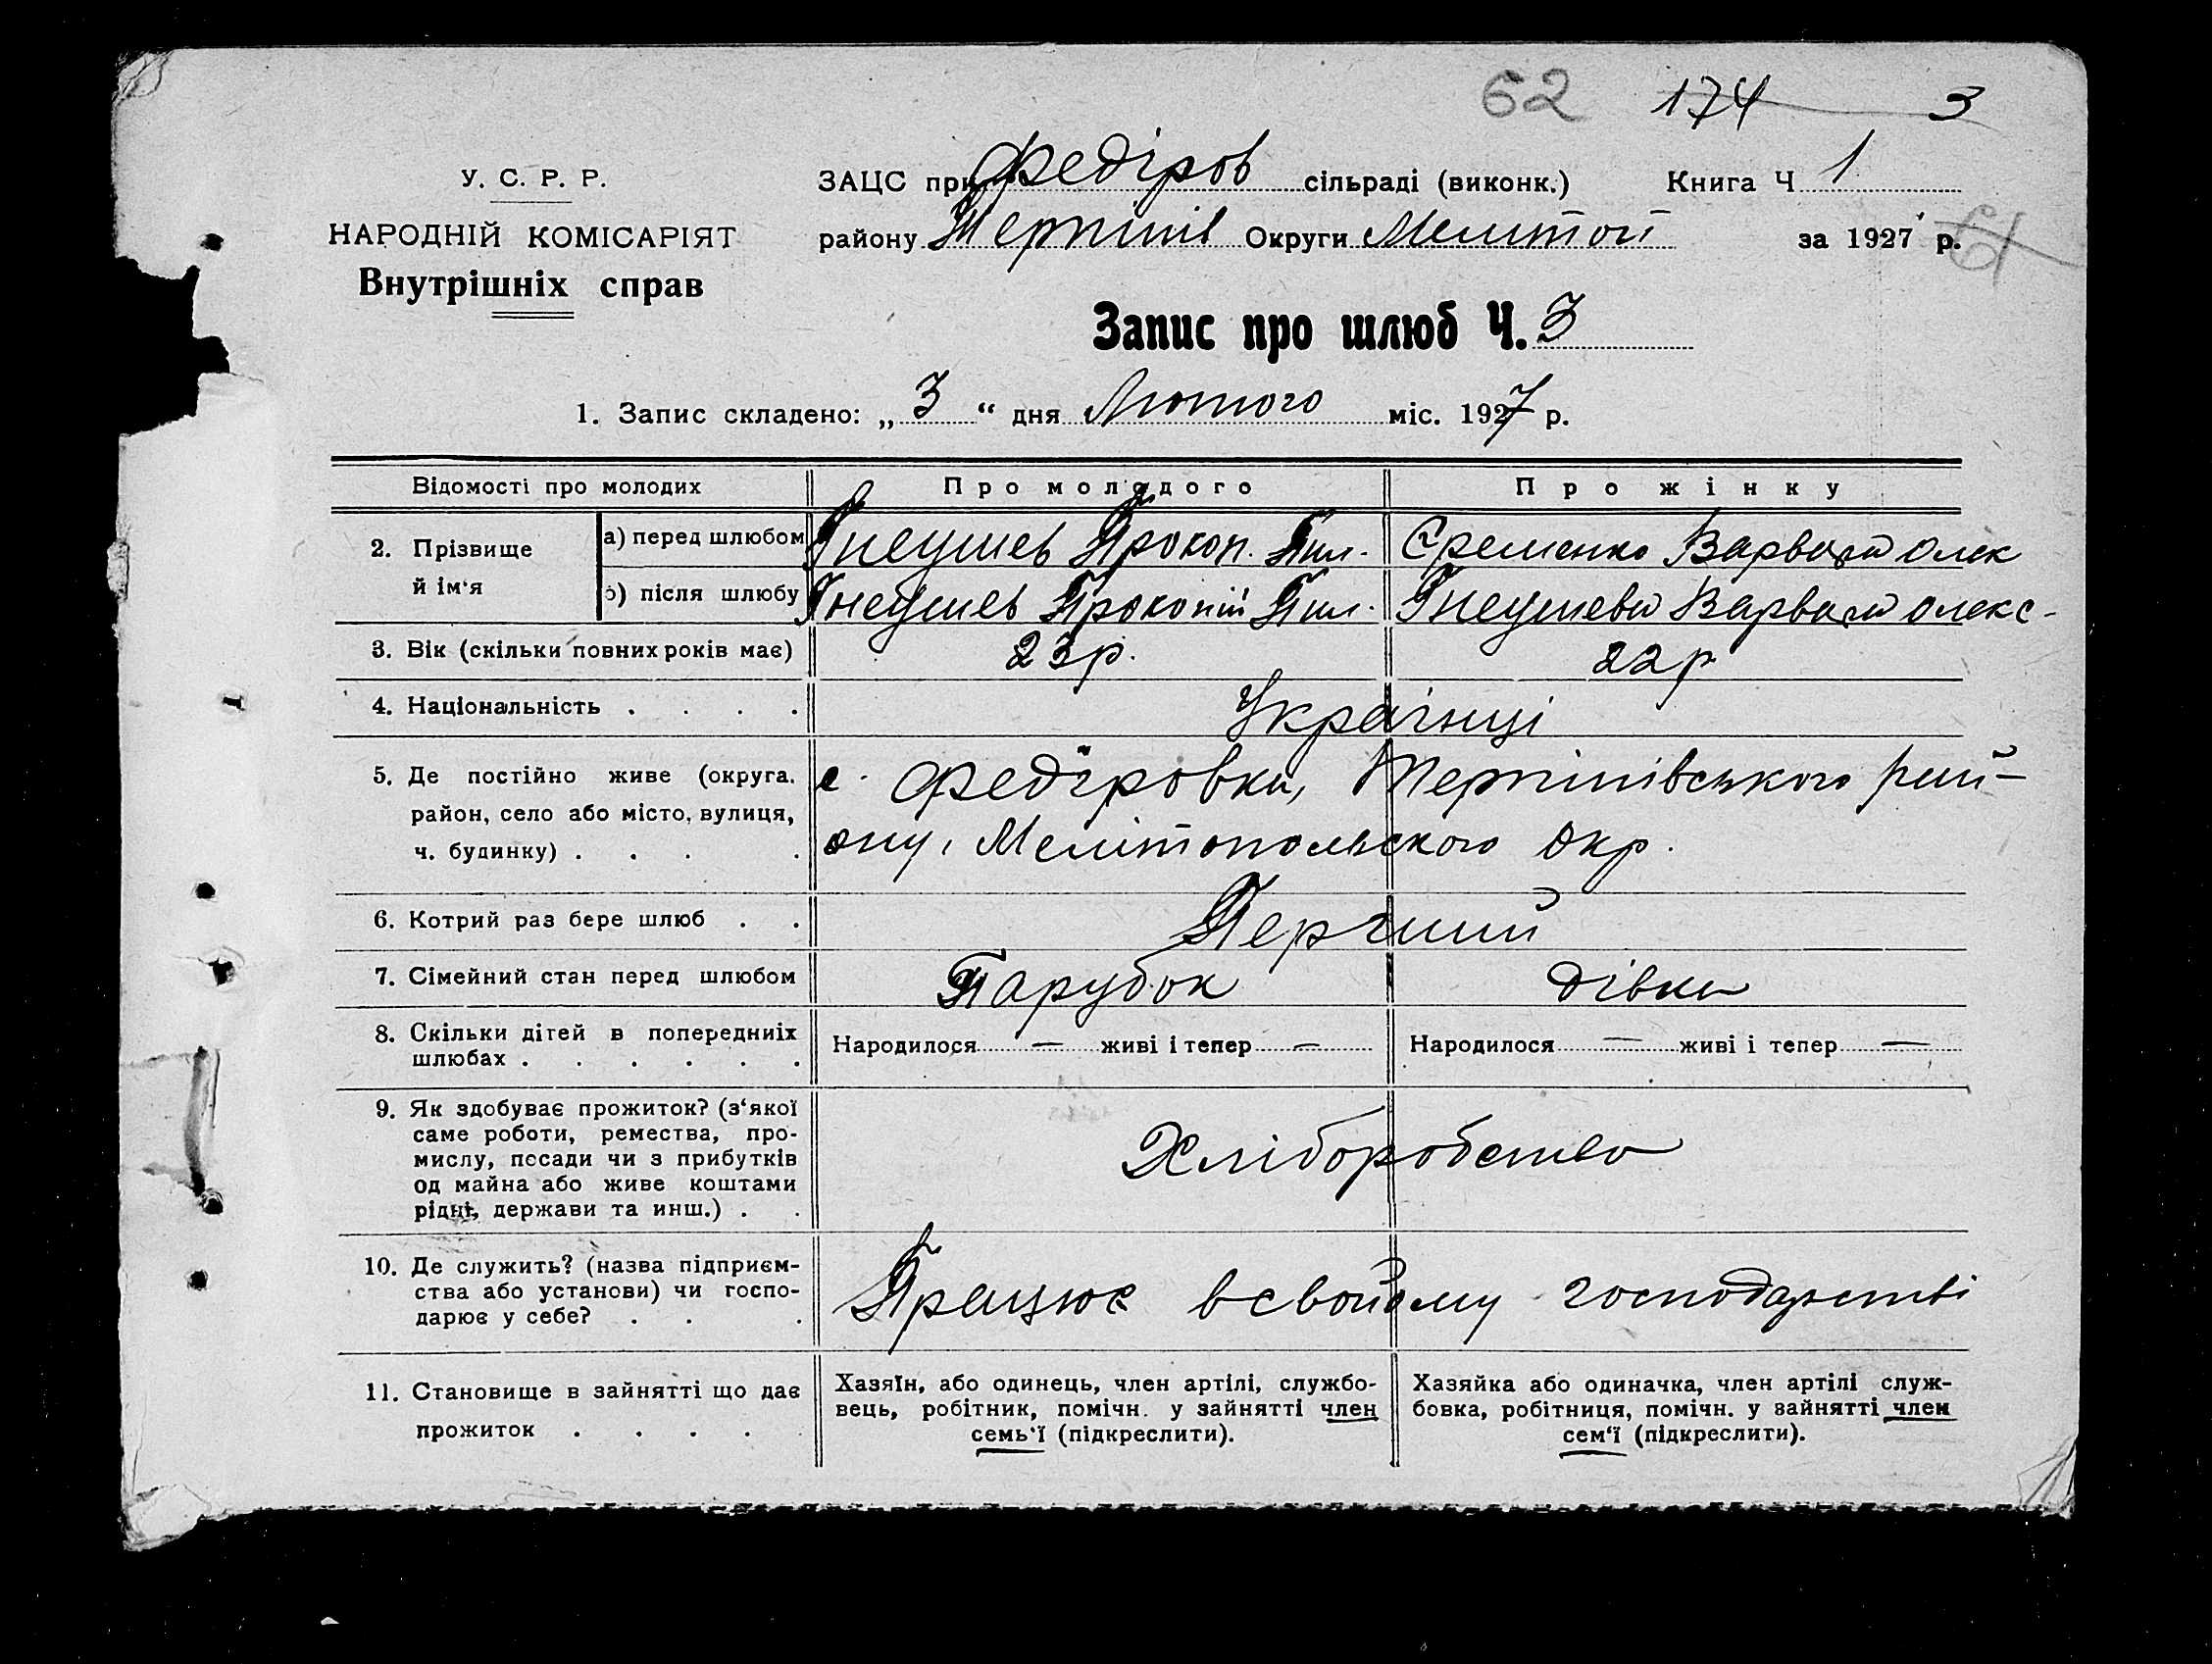 62 174 3
У. С. Р. Р.
ЗАЦС при Федіров сільраді (виконк.) Книга Ч 1
НАРОДНІЙ КОМІСАРІЯТ
району Терпінів Округи Мелітоп за 1927 р. 61
Внутрішніх справ
Запис про шлюб Ч. 3
1. Запис складено: „ 3 “ дня Лютого міс. 1927 р.
Відомості про молодих
Про молодого
Про жінку
2. Прізвище й ім‘я
а) перед шлюбом
Гнеушев Прокоп. Пил.
Єременко Варвара Олек
б) після шлюбу
Гнеушев Прокопій Пил.
Гнеушева Варвара Олекс-
3. Вік (скільки повних років має)
23р.
22р
4. Національність . . . .
Українці
5. Де постійно живе (округа,
район, село або місто, вулиця,
ч. будинку) . . . .
с. Федіровка, Терпінівського рай-
ону, Мелітопольского Окр.
6. Котрий раз бере шлюб . .
Перший
7. Сімейний стан перед шлюбом
Парубок
Дівка
8. Скільки дітей в попередниіх
шлюбах . . . . . .
Народилося — живі і тепер —
Народилося — живі і тепер —
9. Як здобуває прожиток? (з‘якої
саме роботи, ремества, про-
мислу, посади чи з прибутків
од майна або живе коштами
рідні, держави та инш.) . .
Хліборобство
10. Де служить? (назва підприєм-
ства або установи) чи госпо-
дарює у себе? . . .
Працює в свойому господарстві
11. Становище в зайнятті що дає
прожиток . . . .
Хазяїн, або одинець, член артілі, службо-
вець, робітник, помічн. у зайнятті член
семь‘ї (підкреслити).
Хазяйка або одиначка, член артілі служ-
бовка, робітниця, помічн. у зайнятті член
сем‘ї (підкреслити).